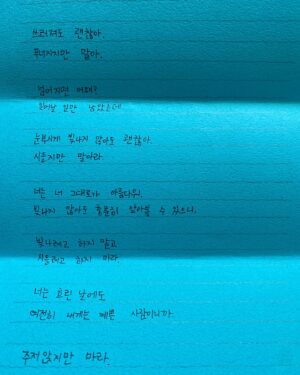 쓰러져도 괜찮아.
무너지지만 말아.
넘어지면 어때?
일어날 일만 남았는데.
눈부시게 빛나지 않아도 괜찮아.
시들지만 말아라.
너는 너 그대로가 아름다워.
빛나지 않아도 충분히 살아볼 수 있으니.
빛나려고 하지 말고
시들려고 하지 마라.
너는 흐린 날에도
여전히 내게는 예쁜 사람이니까.
주저앉지만 마라.